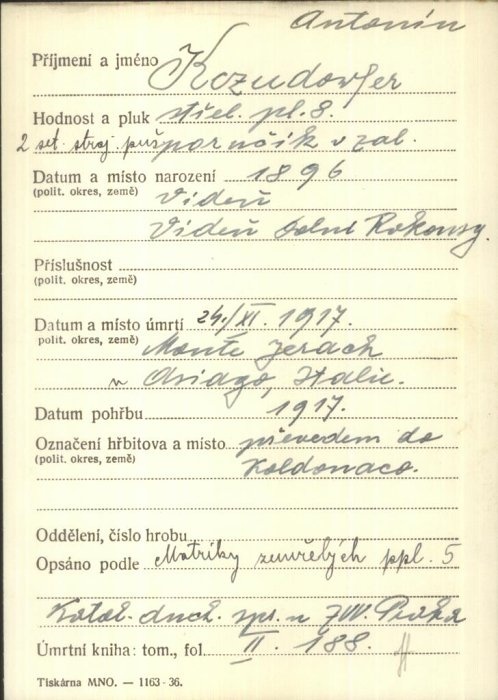 Antonín
Příjmení a jméno
Hodnost a pluk střel. pl. 8.
2 set. stroj. puš. poručík v zál.
Datum a místo narození 1896
(polit. okres, země) Vídeň
Vídeň Dolní Rakousy.
Příslušnost
(polit. okres, země)
Datum a místo úmrtí 24./XI. 1917.
polit. okres, země) Monte
u Asiago, Italie.
Datum pohřbu 1917.
Označení hřbitova a místo převedem do
(polit. okres, země) Koldonaco.
Oddělení, číslo hrobu
Opsáno podle Matriky zemřelých ppl. 5
Katol. duch. spr. u ZVV. Praha
Úmrtní kniha: tom., fol. II. 188.
Tiskárna MNO. — 1163-36.